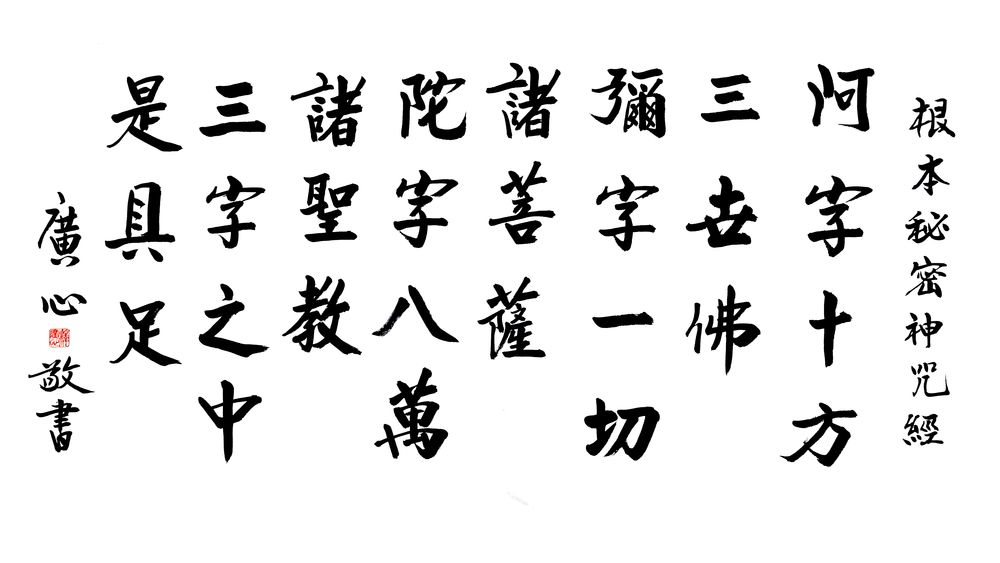 根本秘密神咒經
阿字十方
三世佛
彌字一切
諸菩薩
陀字八萬
諸聖教
三字之中
是具足
廣心
敬書